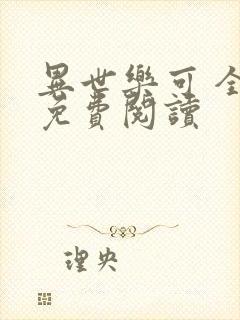 異世樂可 全
免費閱讀
理央